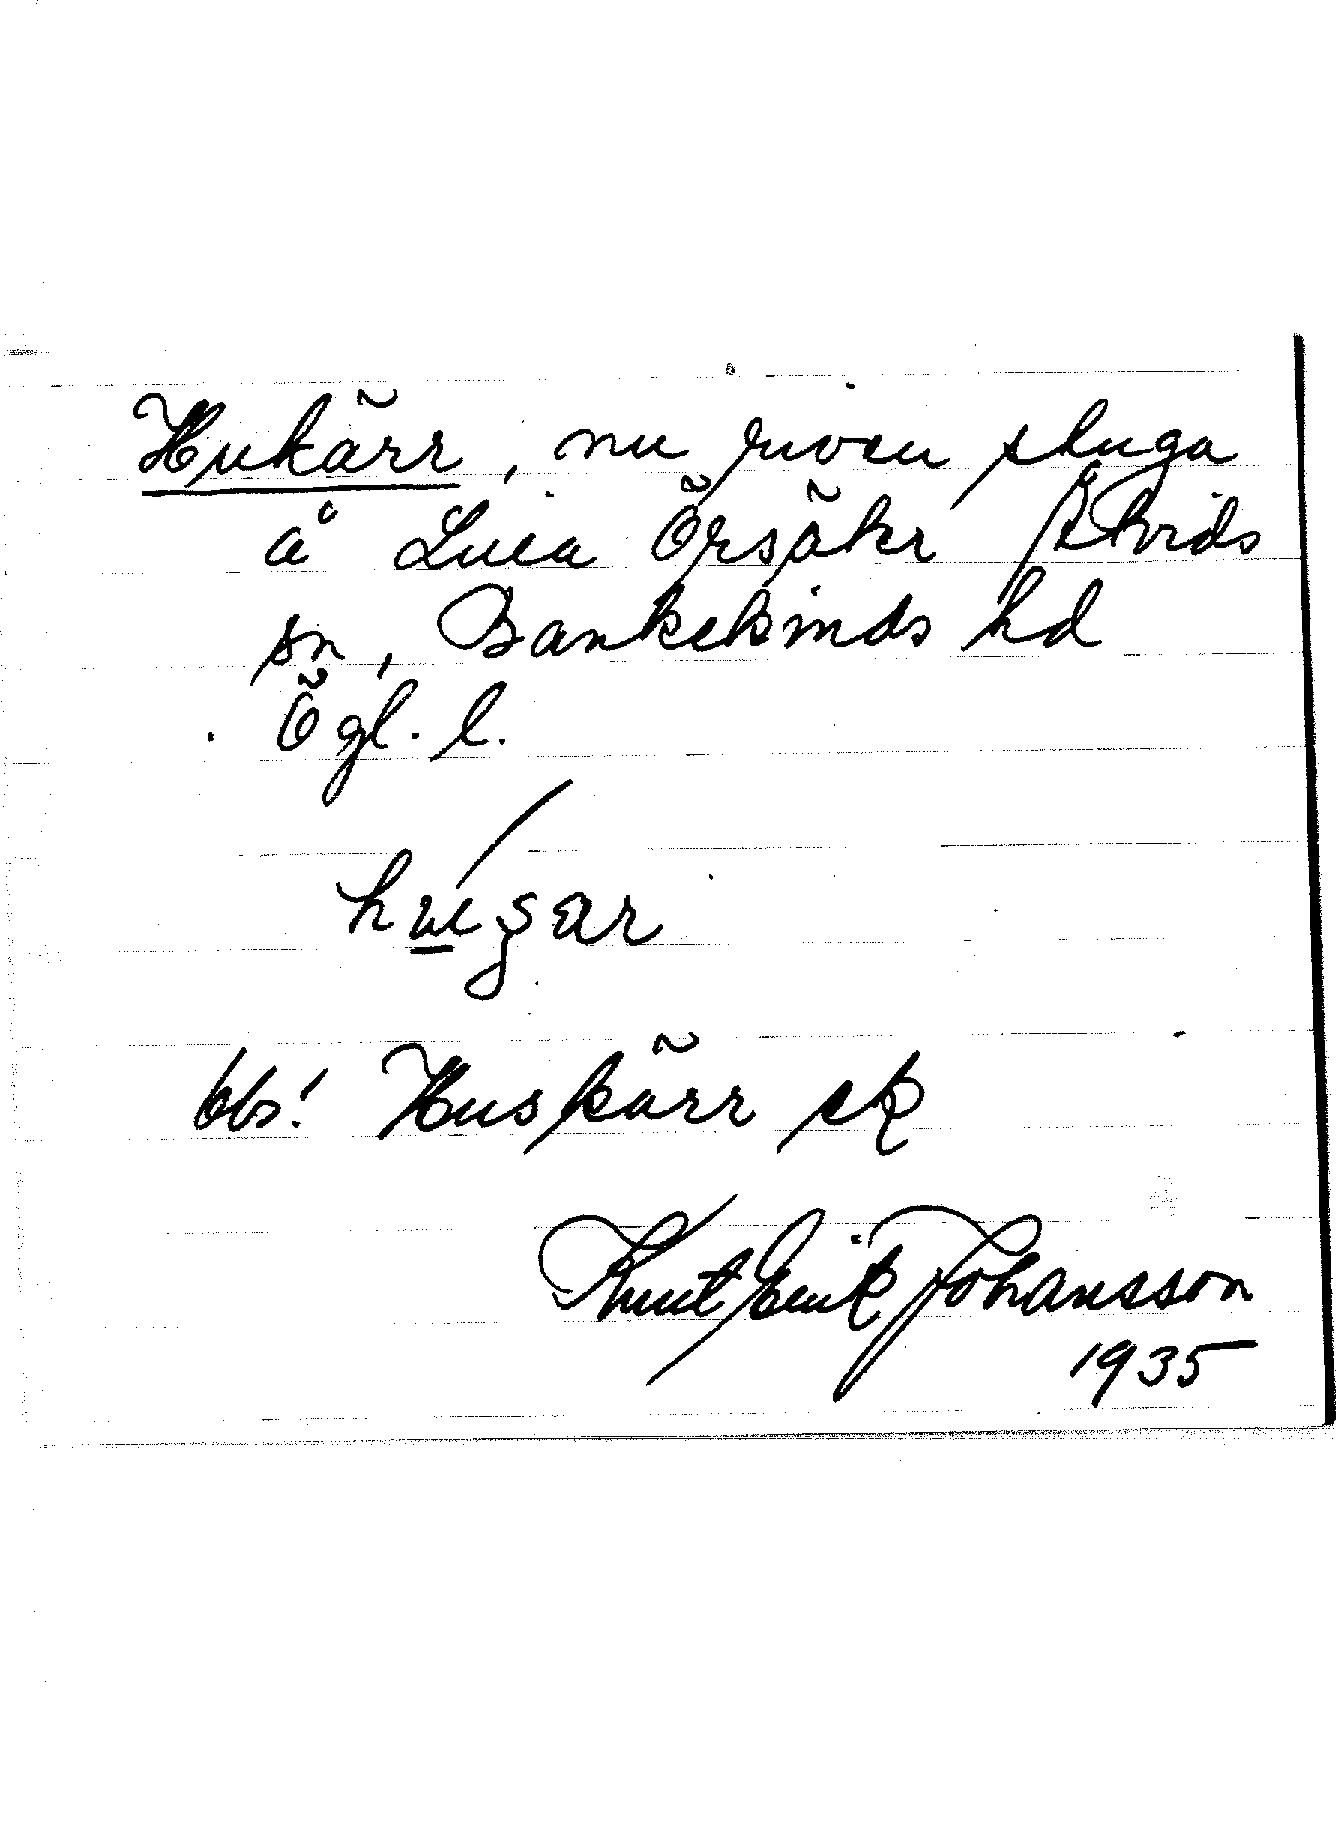 Hukärr, nu riven stuga
å Lilla Örsäkr Åtvids
sn, Bankekinds hd
Ögl. l.
obs! Huskärr ek
Knut Erik Johansson
1935